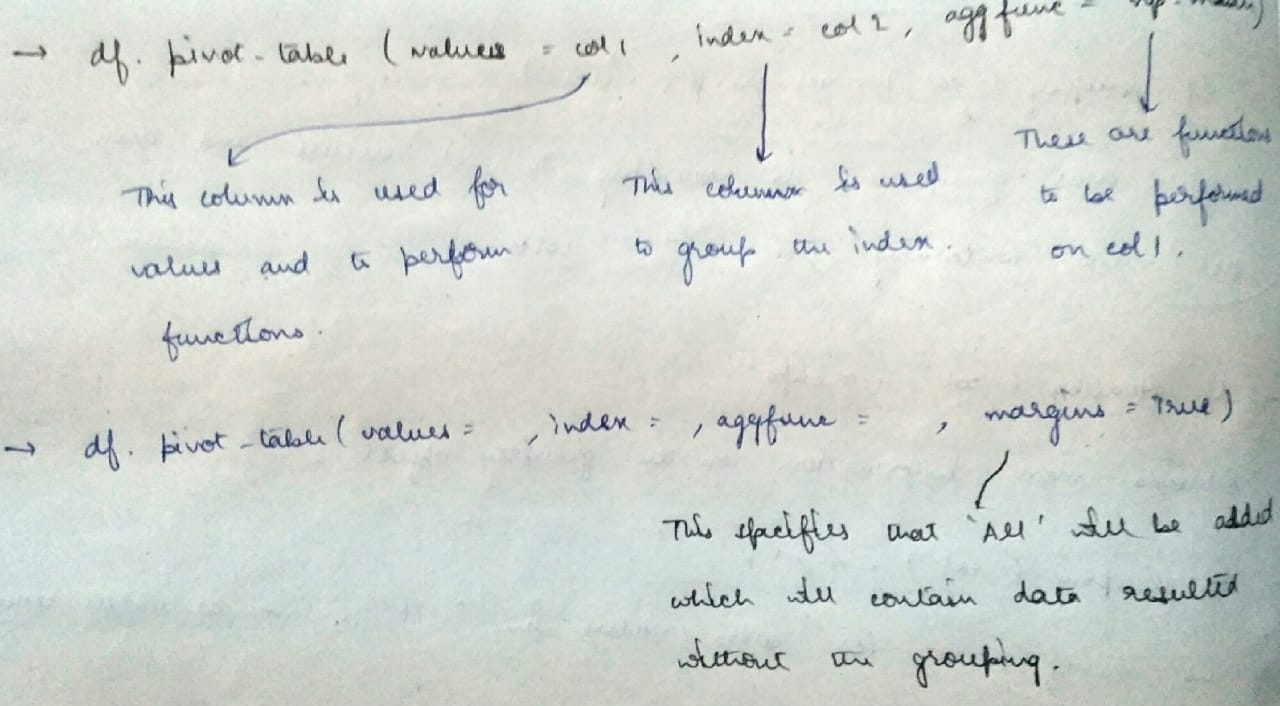 → df. pivot-table (values = col1 , index = col 2 , agg func =
This column is used for
values and to perform
functions.
This column is used
to group the index.
These are functions
to be performed
on col1.
→ df. pivot-table ( values = , index = , aggfunc = , margins = True )
This specifies that 'All' will be added
which will contain data resulted
without the grouping.